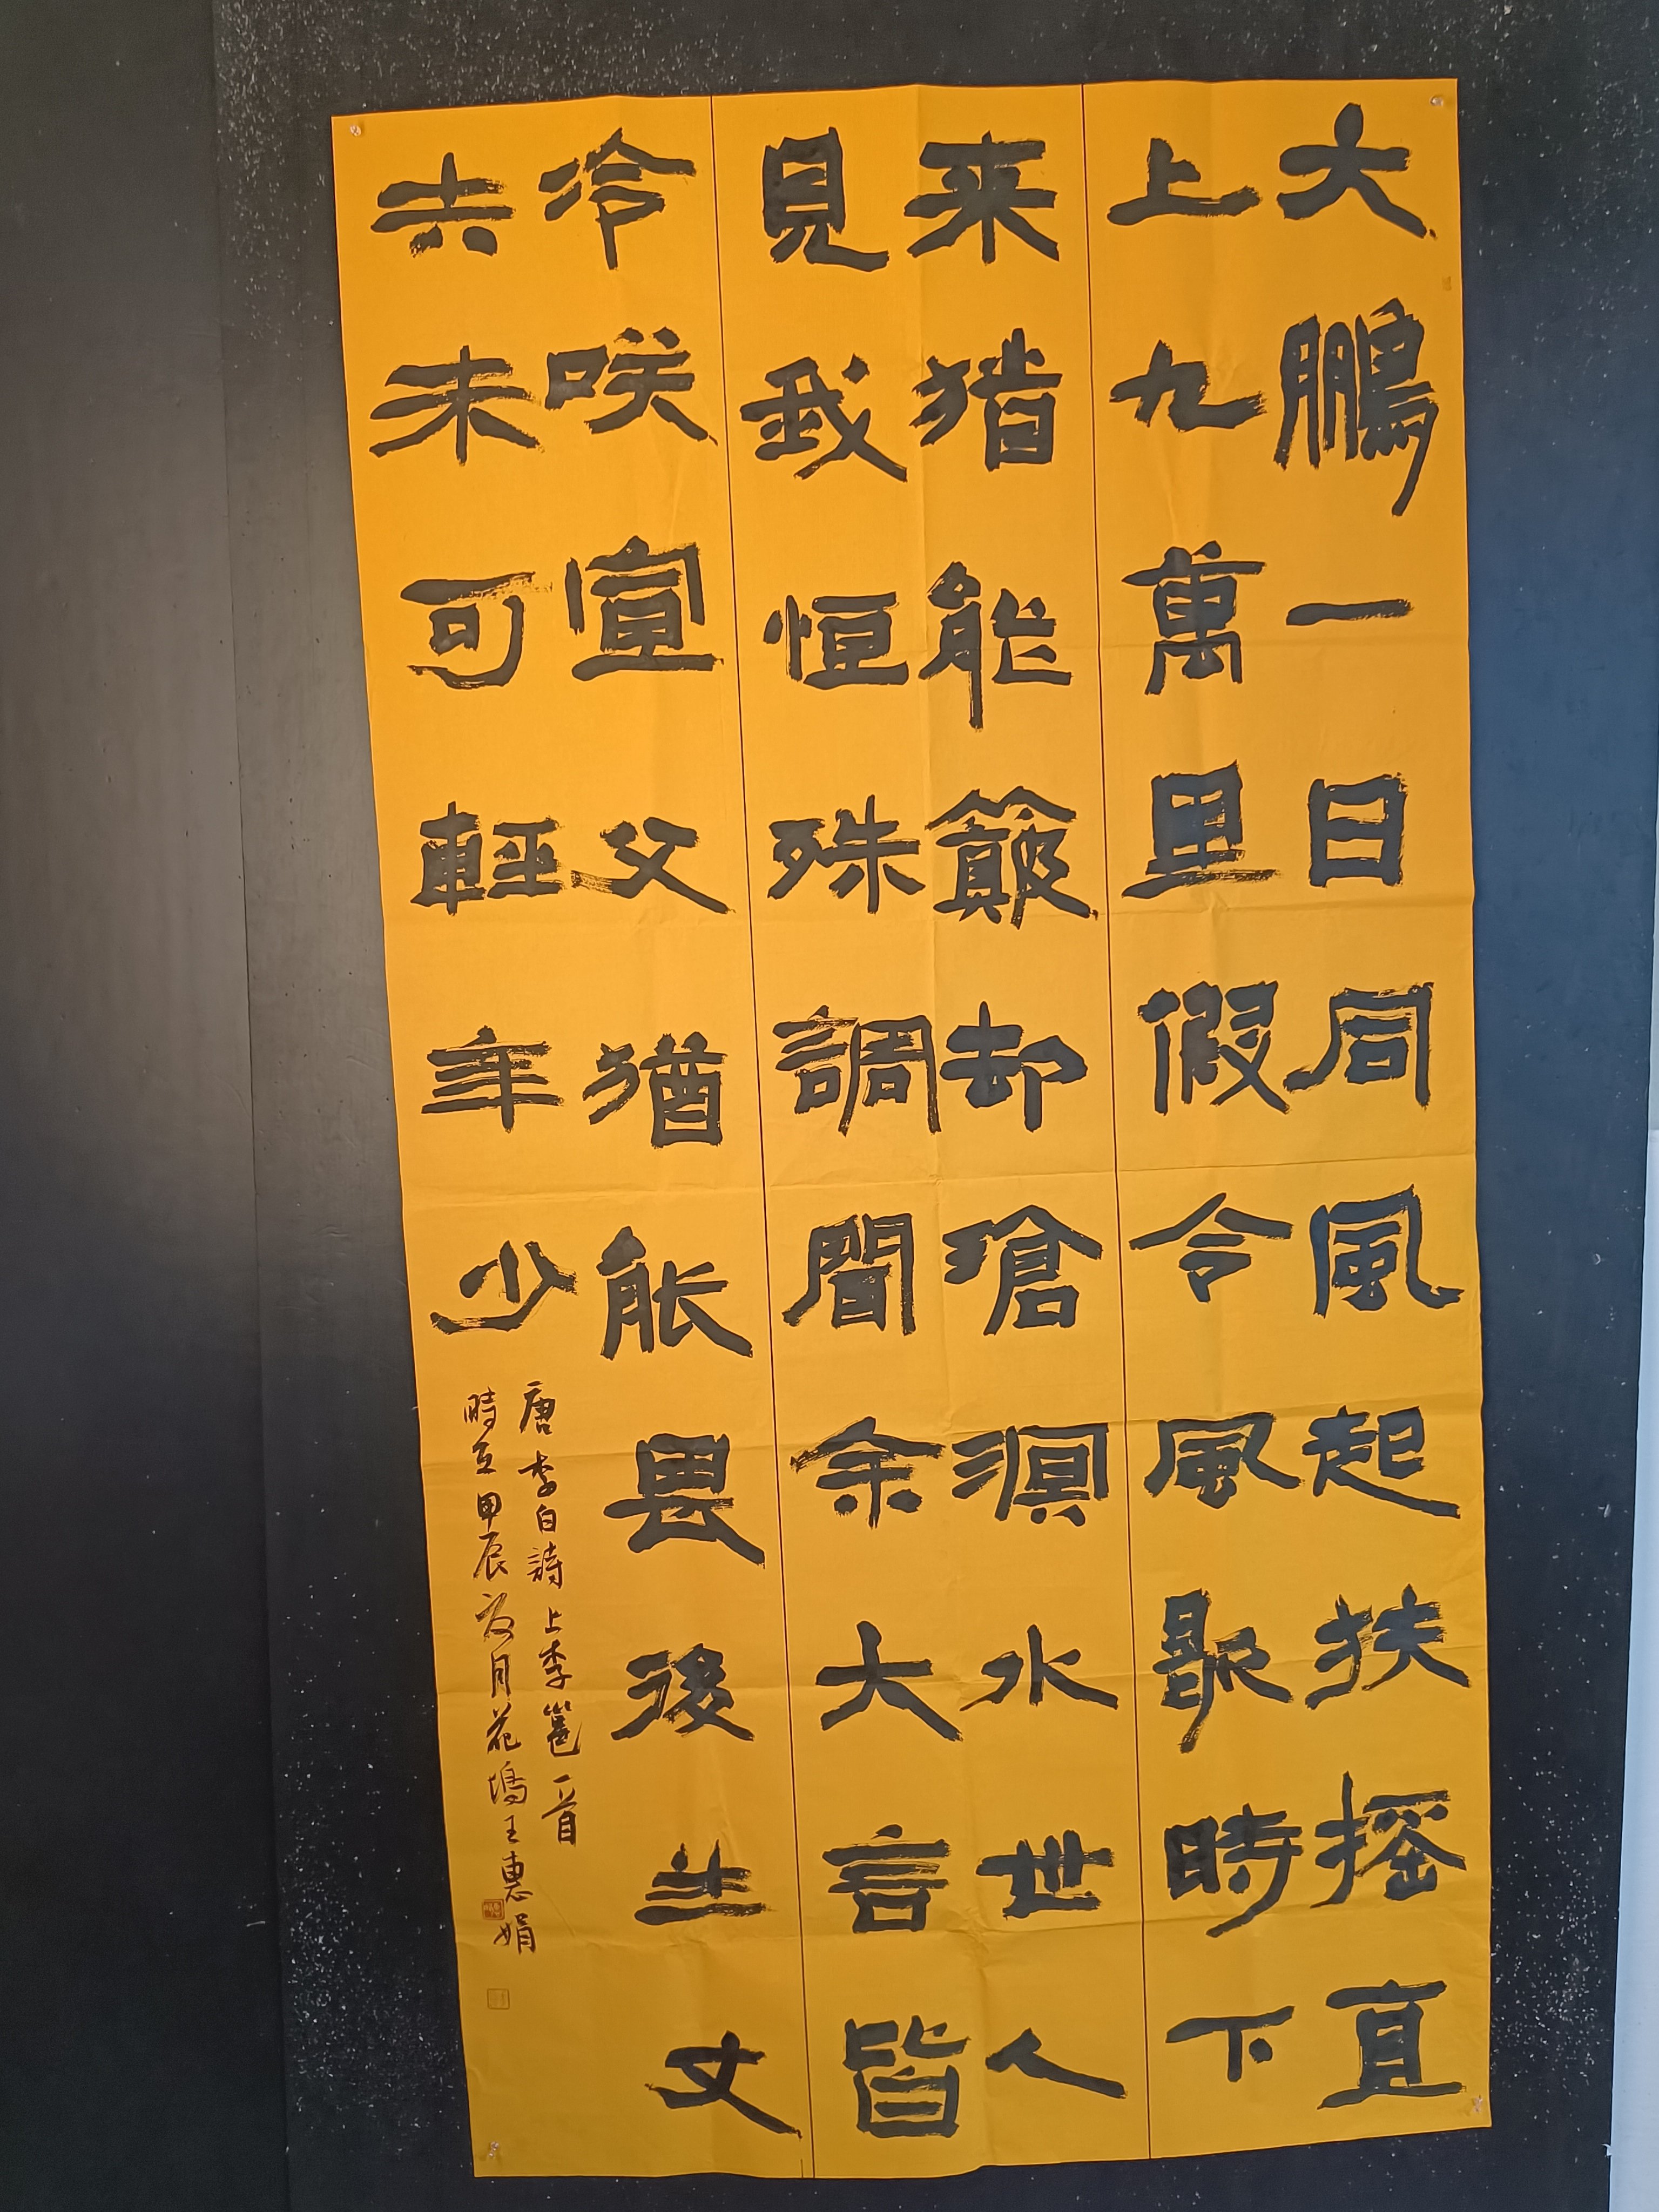 大鵬一日同風起扶摇直
上九萬里假令風歇時下
来猶能簸却滄溟水世人
見我恒殊調聞余大言皆
冷咲宣父猶能畏後生丈
夫未可輕年少
唐李白詩上李邕一首
時在甲辰夏月花塢王惠娟